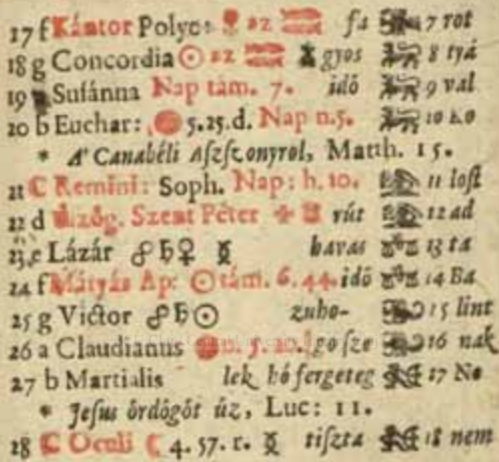 17 f Kántor Polyc: az fa 7 rot
18 g Concordia ☉ az gyos 8 tyá
19 Susánna Nap tám. 7. idő 9 val
20 b Euchar: 5.25.d. Nap n.5. 10 ko
* A' Canabéli Aſzſzonyrol, Matth. 15.
21 C Remini: Soph. Nap: h. 10. 11 loſt
22 d Uſzög. Szent Péter rút 12 ad
23 e Lázár ☍♄♀ havas 13 ta
24 f Mátyás Ap: ☉ tám. 6. 44. idő 14 Ba
25 g Victor ☍♄☉ zuho- 15 lint
26 a Claudianus n. 5. 20. go ſze 16 nak
27 b Martialis lek hó fergeteg 17 No
* Jeſus ördögöt űz, Luc: 11.
28 C Oculi 4. 57. r. tiſzta 18 nem